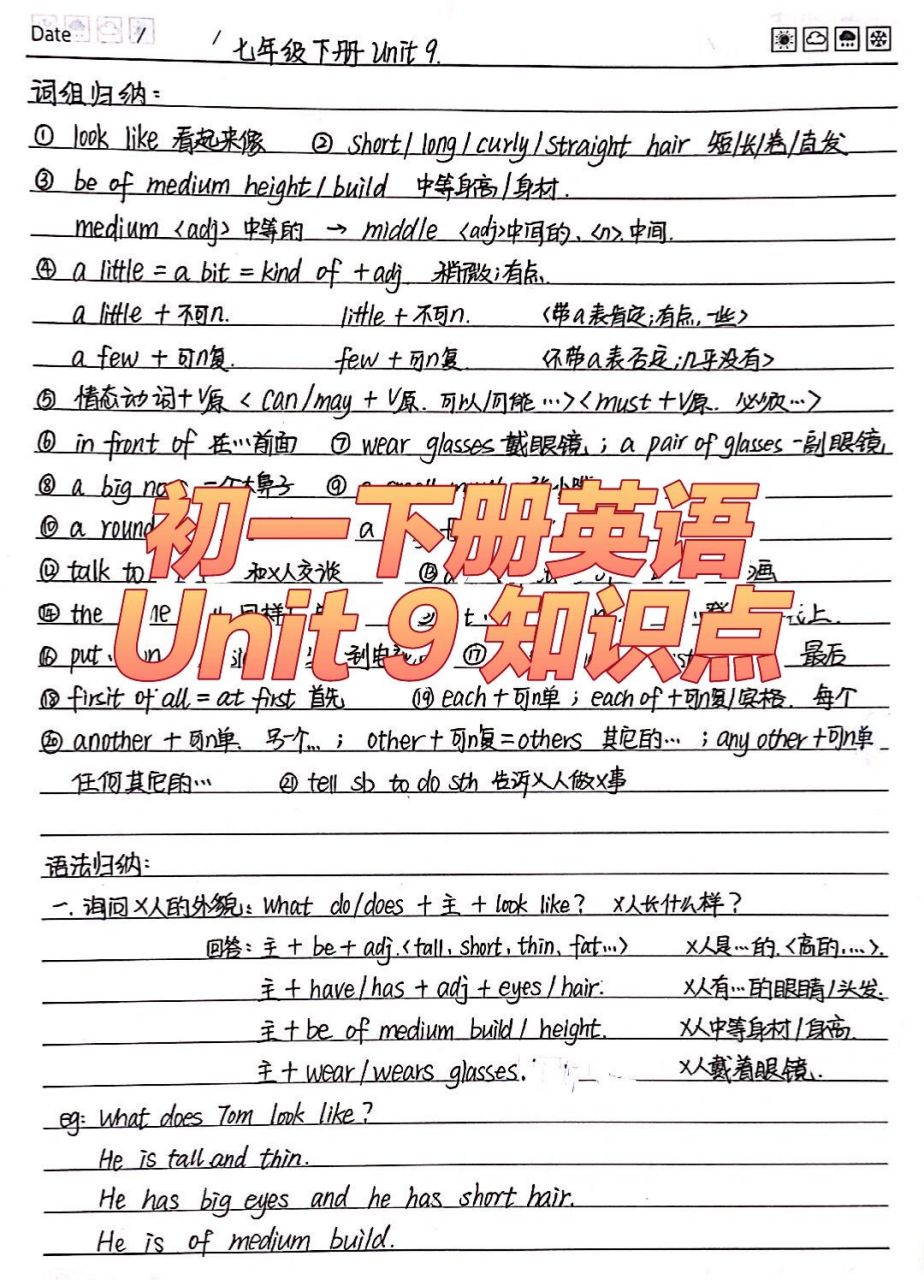 Date
七年级下册 Unit 9.
词组归纳:
① look like 看起来像 ② short/long/curly/straight hair 短/长/卷/直发
③ be of medium height/build 中等身高/身材.
medium <adj> 中等的 → middle <adj>中间的、<n>.中间.
④ a little = a bit = kind of + adj 稍微;有点.
a little + 不可n. little + 不可n. <带a表肯定;有点,一些>
a few + 可n复. few + 可n复 <不带a表否定;几乎没有>
⑤ 情态动词+V原 < can/may + V原. 可以/可能 …><must + V原. 必须…>
⑥ in front of 在…前面 ⑦ wear glasses 戴眼镜 ; a pair of glasses 一副眼镜
⑧ a big 鼻子 ⑨
⑩ a round a
初一下册英语
⑫ talk to 和X人交谈 ⑬ 画
⑭ the 上.
Unit 9 知识点
⑯ put on ⑰ 最后
⑱ firsit of all = at first 首先 ⑲ each + 可n单 ; each of + 可n复/宾格. 每个
⑳ another + 可n单. 另一个… ; other + 可n复 = others 其它的… ; any other + 可n单
任何其它的… ㉑ tell sb to do sth 告诉X人做X事
语法归纳:
一. 询问X人的外貌: What do/does + 主 + look like? X人长什么样?
回答: 主 + be + adj.<tall, short, thin, fat…> X人是…的.<高的,…>.
主 + have/has + adj + eyes/hair. X人有…的眼睛/头发.
主 + be of medium build/ height. X人中等身材/身高.
主 + wear/wears glasses. X人戴着眼镜.
eg: What does Tom look like?
He is tall and thin.
He has big eyes and he has short hair.
He is of medium build.